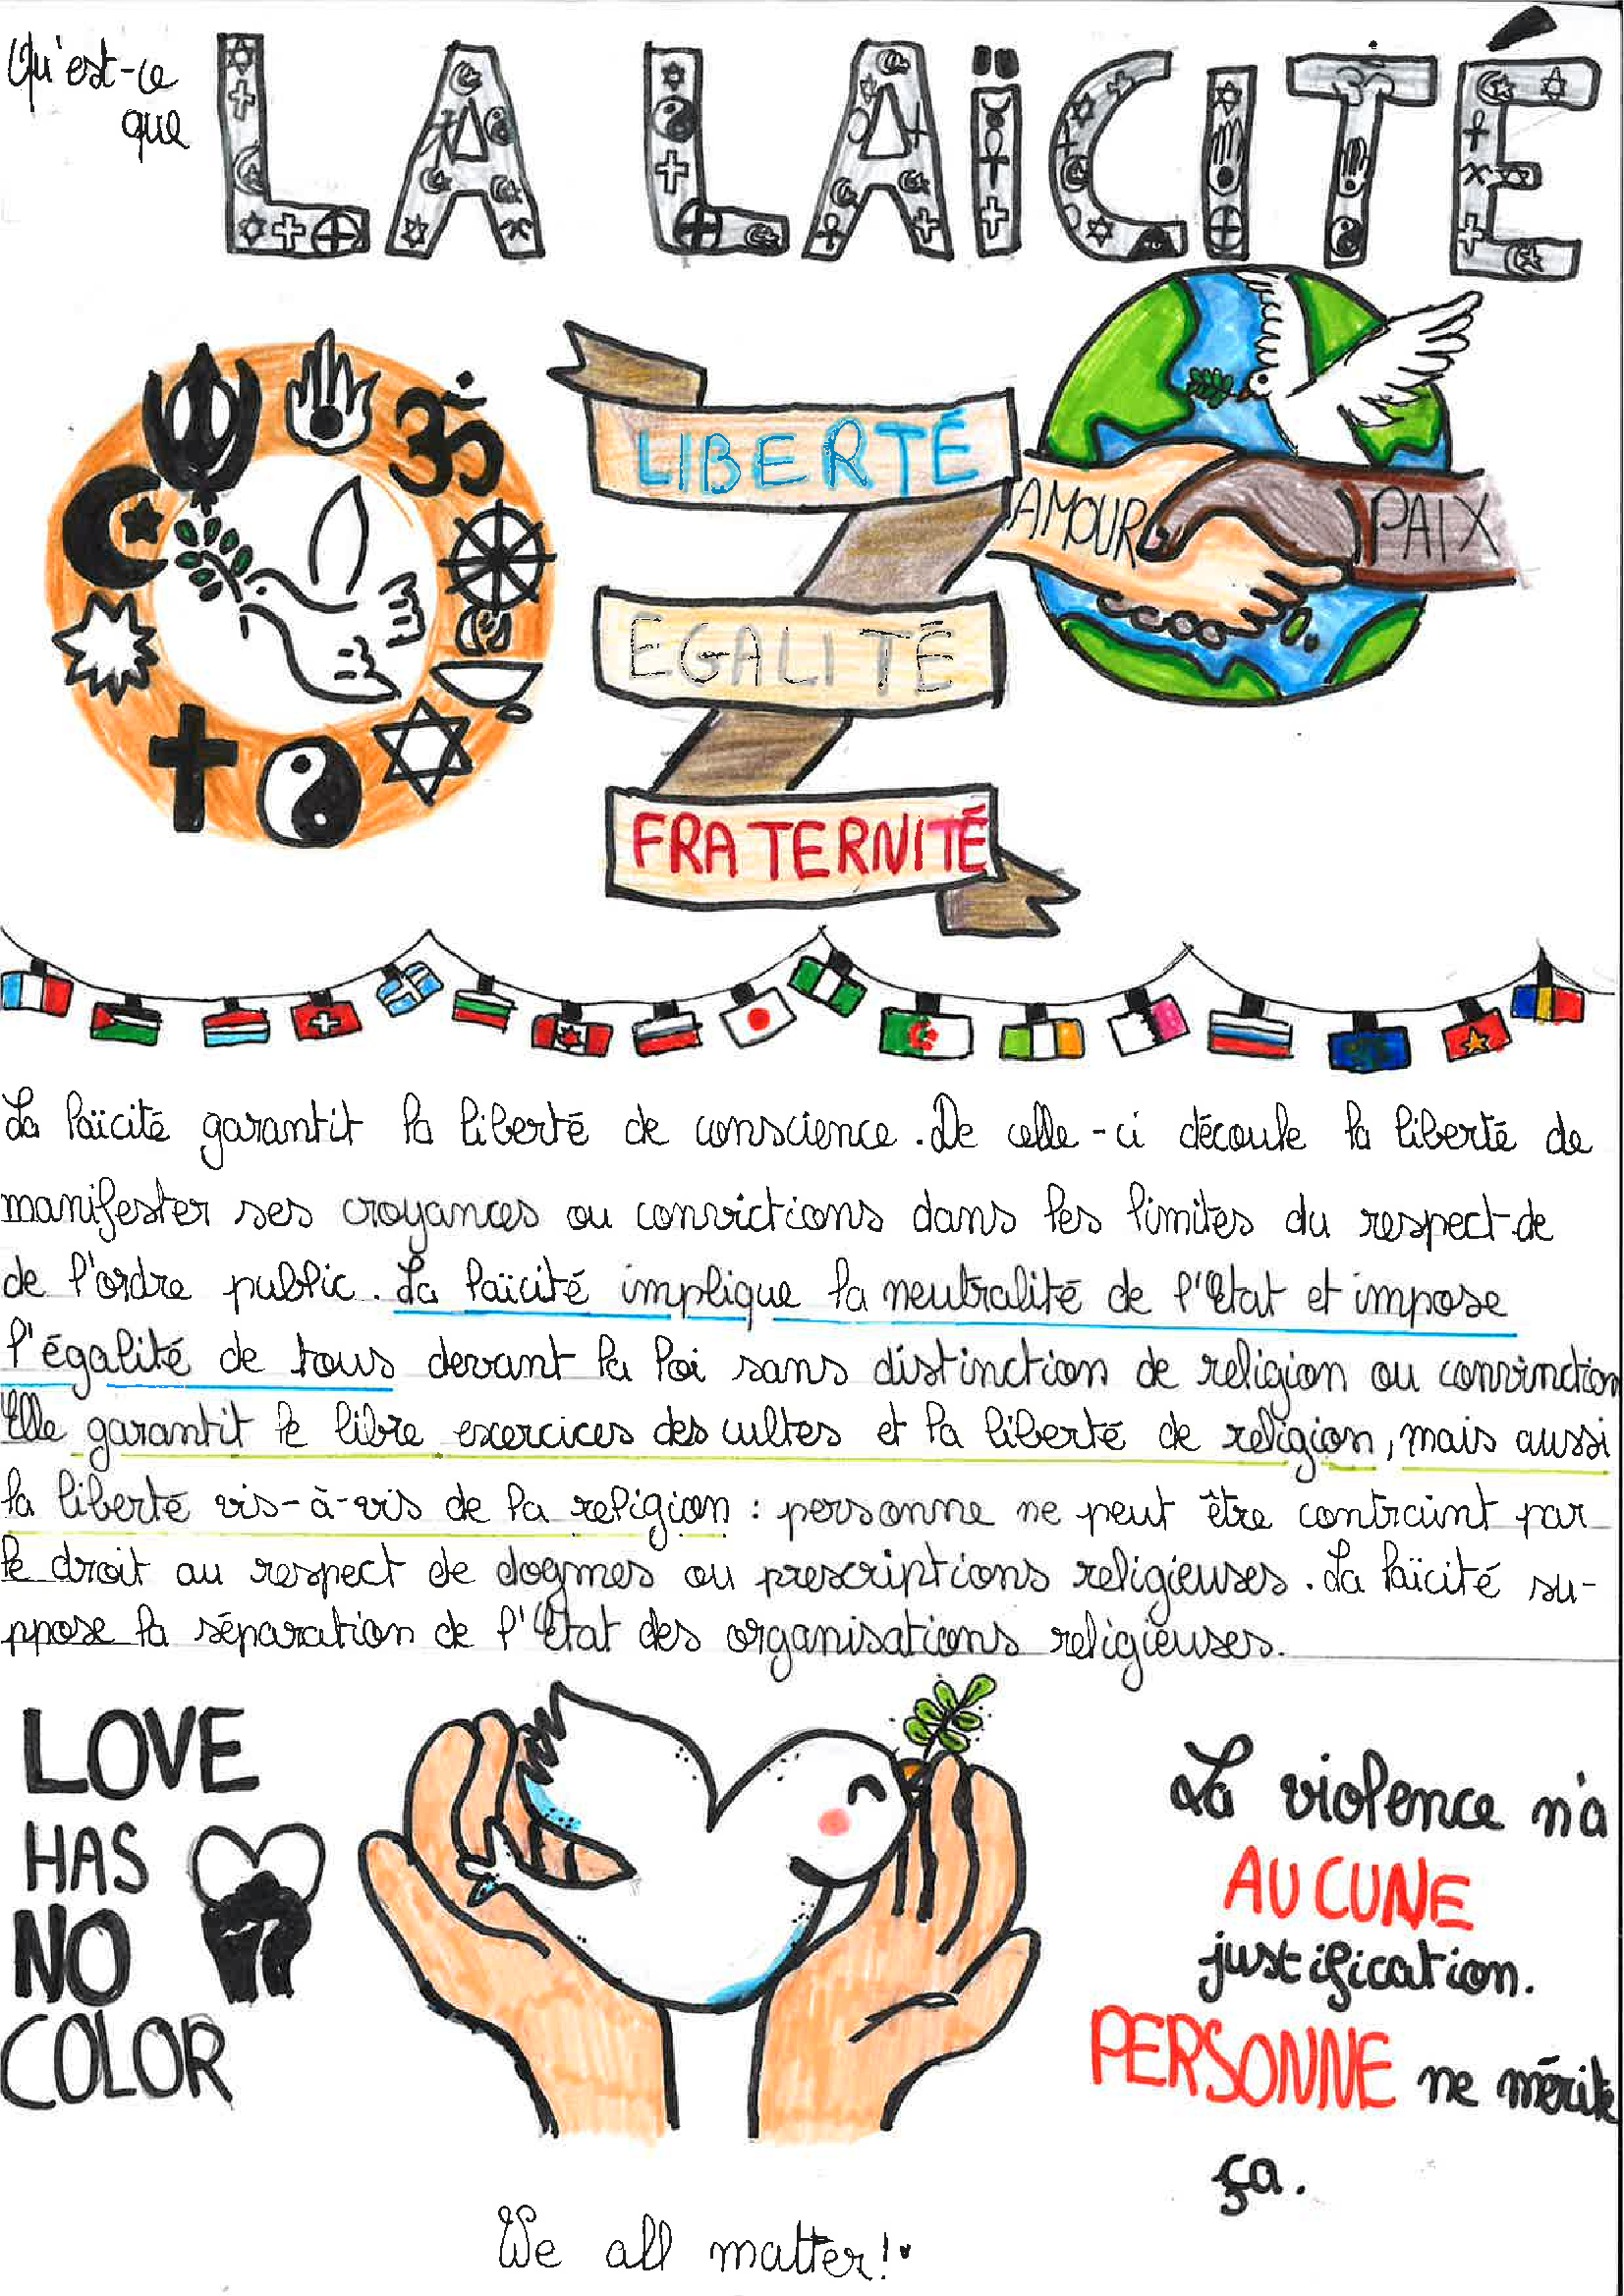 Qu'est-ce
que
LA LAÏCITÉ
LIBERTÉ
AMOUR
PAIX
EGALITÉ
FRATERNITÉ
La laïcité garantit la liberté de conscience. De celle-ci découle la liberté de
manifester ses croyances ou convictions dans les limites du respect de
de l'ordre public. La laïcité implique la neutralité de l'Etat et impose
l'égalité de tous devant la loi sans distinction de religion ou convinction
Elle garantit le libre exercices des cultes et la liberté de religion, mais aussi
la liberté vis-à-vis de la religion : personne ne peut être contraint par
le droit au respect de dogmes ou prescriptions religieuses. La laïcité su-
ppose la séparation de l'Etat des organisations religieuses.
LOVE
HAS
NO
COLOR
La violence n'a
AUCUNE
justification.
PERSONNE ne mérite
ça.
We all matter!